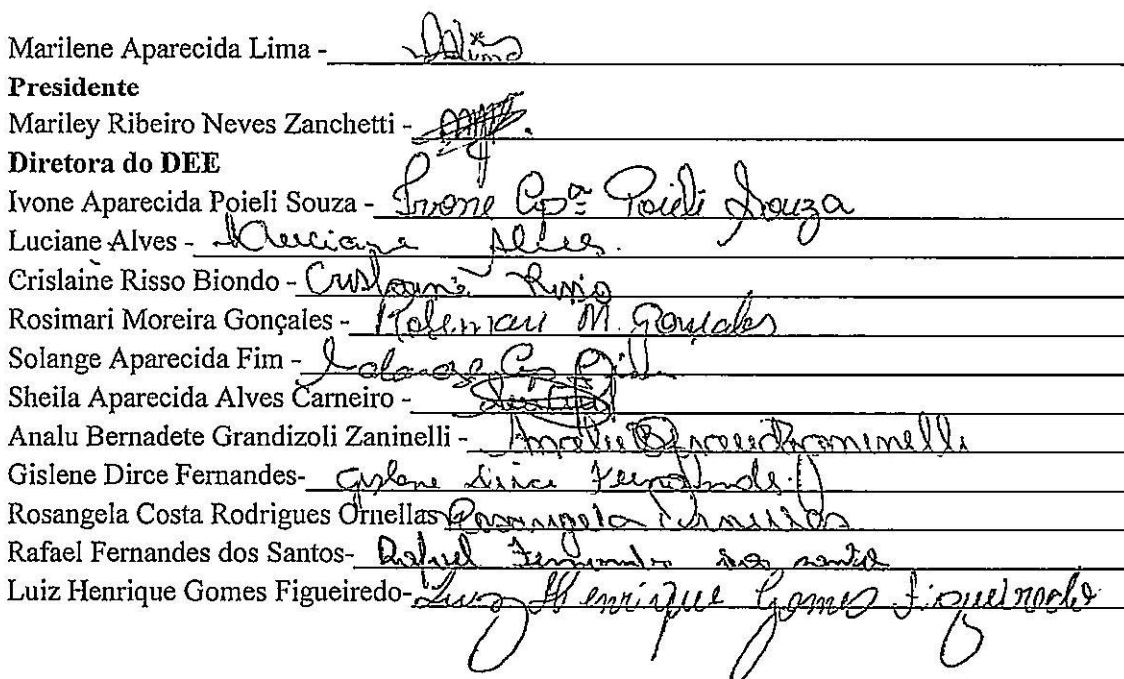 Marilene Aparecida Lima - MLima
Presidente
Mariley Ribeiro Neves Zanchetti -
Diretora do DEE
Ivone Aparecida Poieli Souza - Ivone Apª Poieli Souza
Luciane Alves - Luciane Alves.
Crislaine Risso Biondo - Crislaine Risso
Rosimari Moreira Gonçales - Rosemari M. Gonçales
Solange Aparecida Fim - Solange Ap Fim
Sheila Aparecida Alves Carneiro -
Analu Bernadete Grandizoli Zaninelli - Analu B Grand Zaninelli
Gislene Dirce Fernandes- Gislene Dirce Fernandes.
Rosangela Costa Rodrigues Ornellas Rosangela Ornellas
Rafael Fernandes dos Santos- Rafael Fernandes dos Santos
Luiz Henrique Gomes Figueiredo- Luiz Henrique Gomes Figueiredo